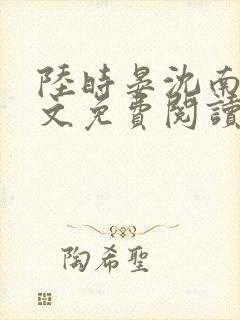 陸時晏沈南
文免費閱讀
陶希聖